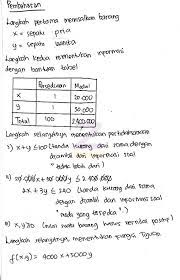 Pembahasan
Langkah pertama memisalkan barang
x = sepatu pria
y = sepatu wanita
Langkah kedua menentukan informasi
dengan bantuan tabel
Persediaan Modal
x 1 20.000
y 1 30.000
Total 100 2.400.000
Langkah selanjutnya menentukan pertidaksamaan
1) x+y ≤ 100 (tanda kurang dari sama dengan
diambil dari informasi soal
"tidak lebih dari")
2x + 3y ≤ 240 (tanda kurang dari sama
dengan diambil dari informasi soal
"modal yang tersedia")
(nilai pada barang harus bernilai positif)
Langkah selanjutnya, menentukan Fungsi Tujuan
f(x,y) =